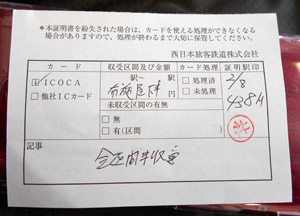 ＊本証明書を紛失された場合は、カードを使える処理ができなくなる
場合がありますので、処理が終わるまで大切に保管してください。
西日本旅客鉄道株式会社
カード 収受区間及び金額 カード処理 証明駅印
☑ICOCA 駅〜 駅 □処理済 2/8
□他社ICカード 円 □未処理 438H
未収受区間の有無
□無
□有（区間 ）
記事